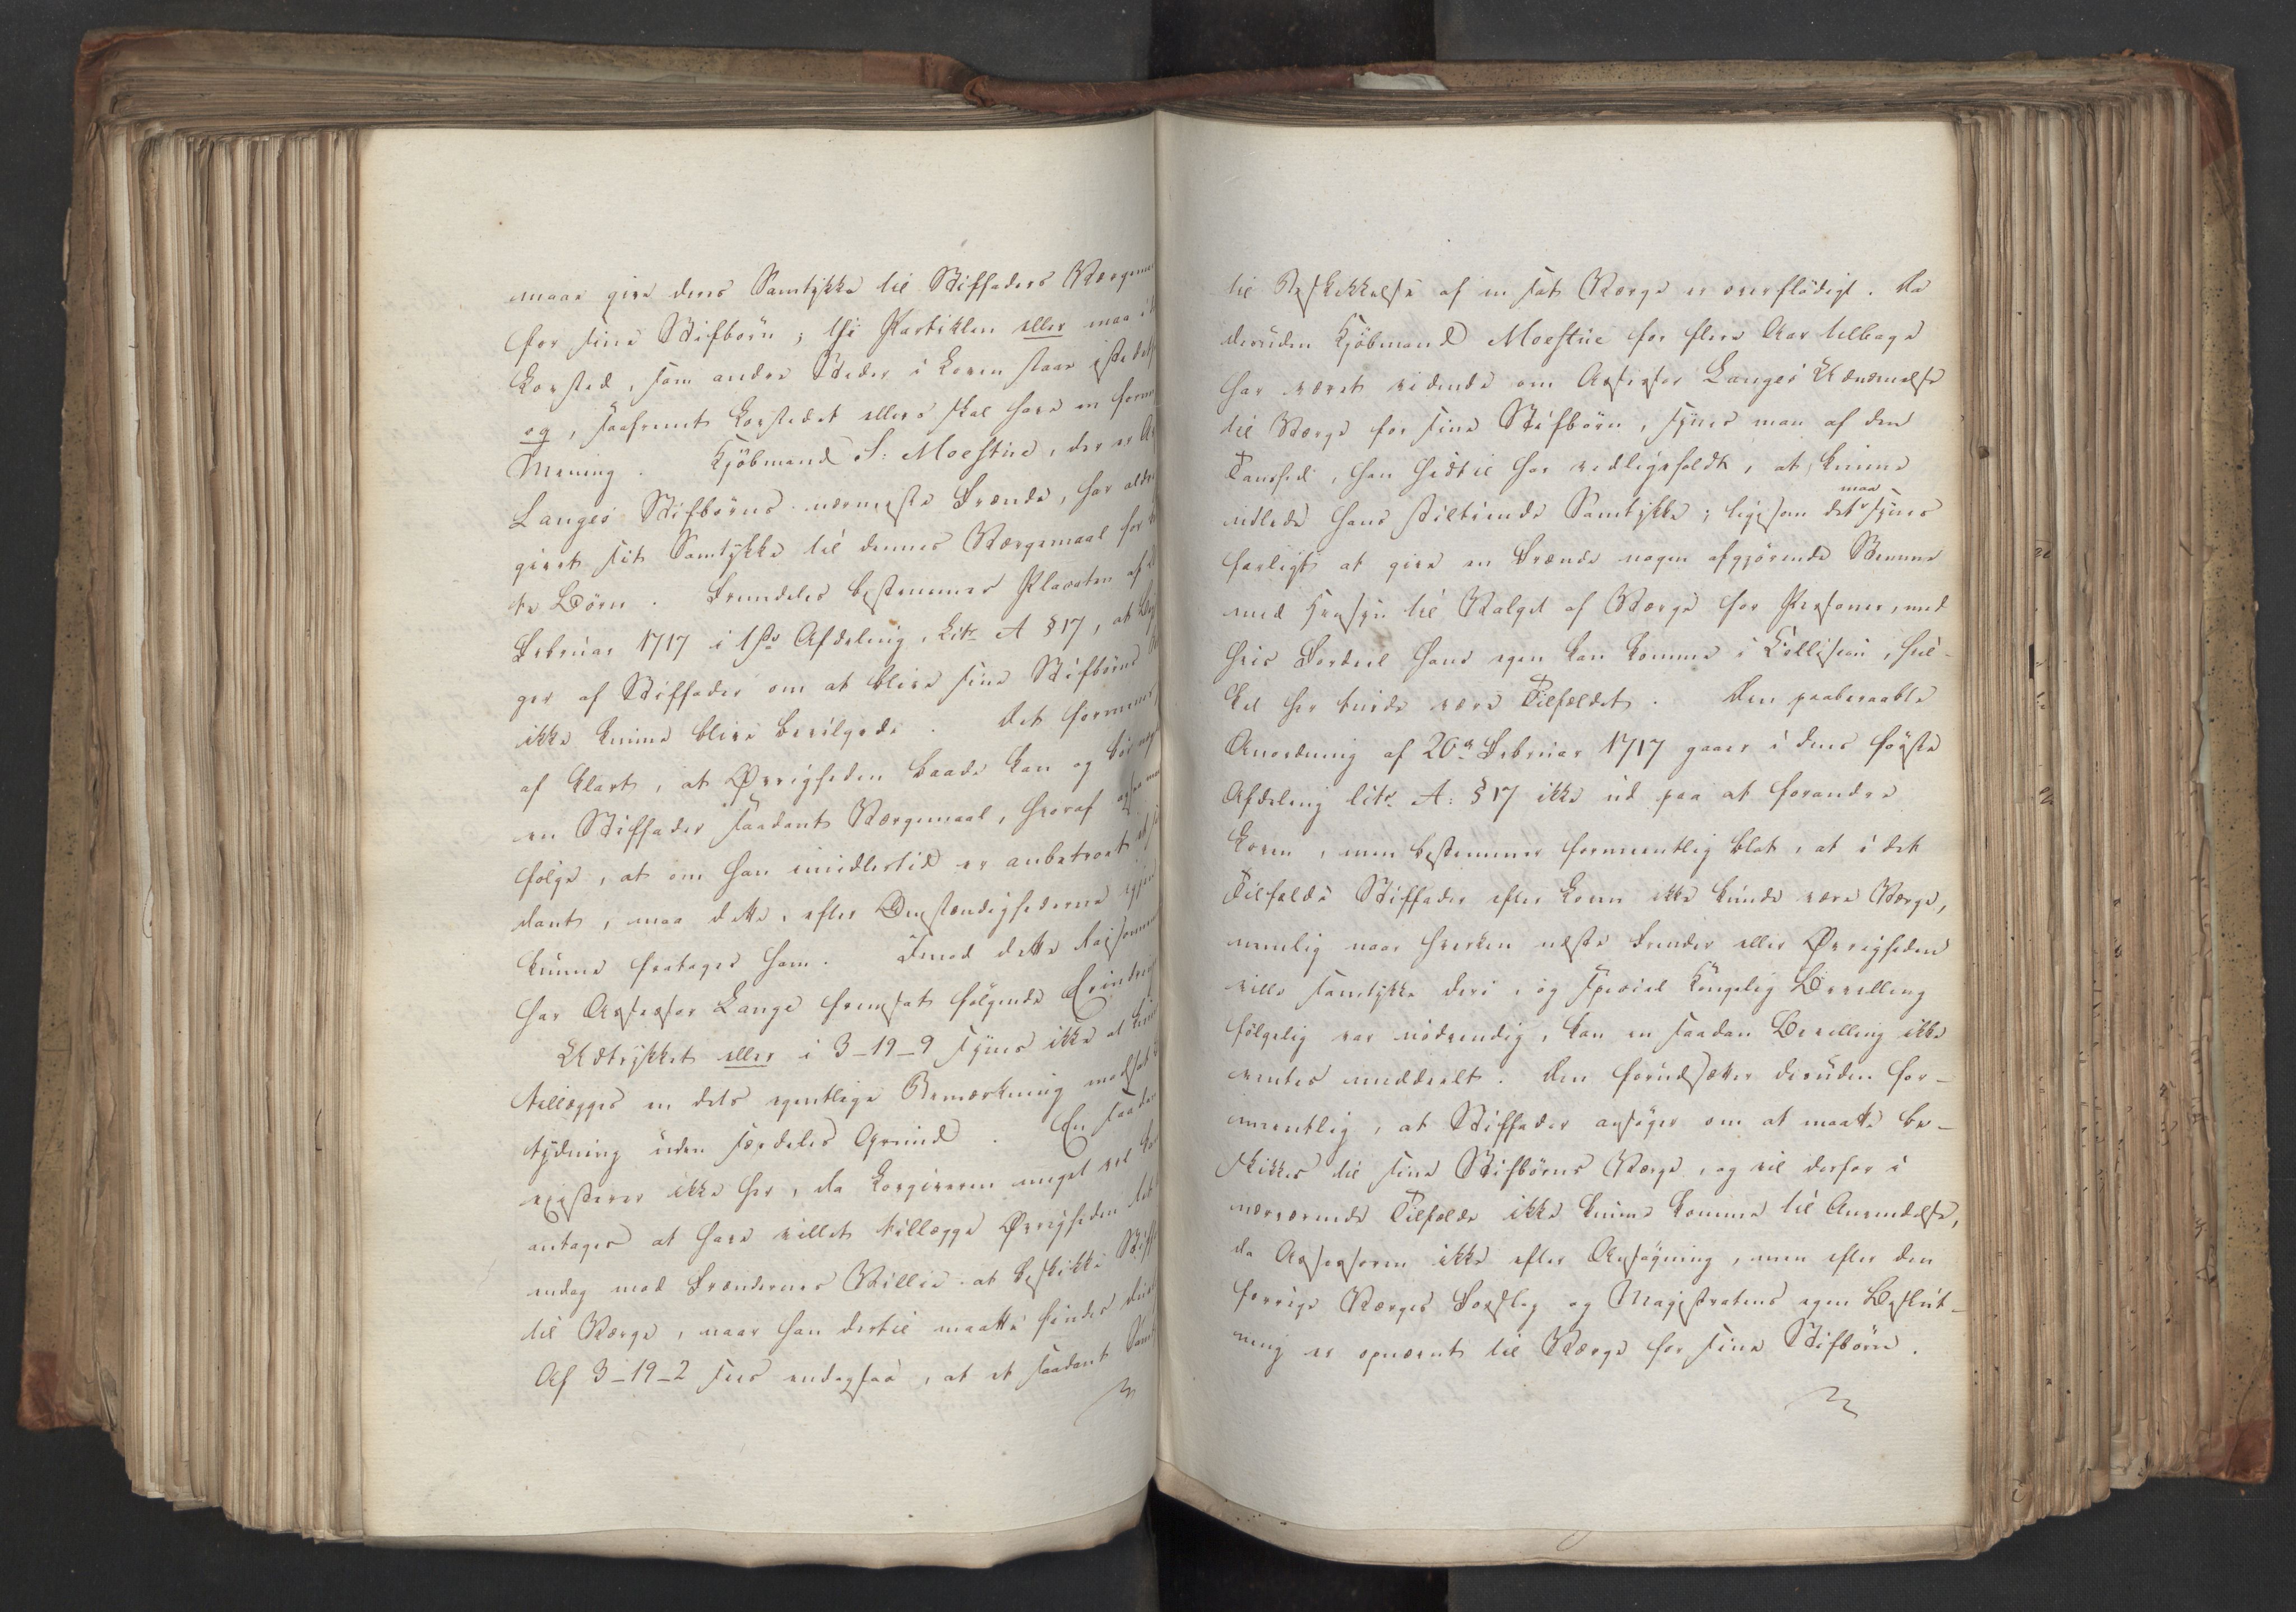 maae give deres Samtykke til Stiffaders Værgema
for sine Stifbørn; thi Partiklen eller maa i
Lovsted, som andre Steder i Loven staae istedet
og, saafremt Lovstedet ellers skal have en forn
Mening. Kjöbmand S: Moestue, der er A
Langes Stifbörns nærmeste Frænde, har aldr
givet sit Samtykke til dennes Værgemaal for
te Börn. Fremdeles bestemmer Placaten af
Februar 1717 i 1ste Afdeling, Litr A § 17, at
ger af Stiffader om at blive sine Stifbörns
ikke kunne blive bevilgede. Det formenes
af klart, at Øvrigheden baade kan og bör
en Stiffader saadant Værgemaal, hvoraf
fölge, at om han imidlertid er anbetroet et
dant, maa dette, efter Omstændighederne
kunne fratages ham. Imod dette Raisonnem
har Assessor Lange fremsat fölgende Erindring
Udtrykket eller i 3-19-9 synes ikke at kun
tillægges en dets egentlige Bemærkning modsat
tydning uden særdeles Grund. En saadan
existerer ikke her, da Lovgiveren meget vel kan
antages at have villet tillægge Øvrigheden
endog mod Frændernes Villie at beskikke Stiff
til Værge, naar han dertil maatte findes
Af 3-19-2 sees endogsaa, at et saadant Samt
til Beskikkelse af en sat Værge er overflödigt. Da
desuden Kjöbmand Moestue for flere Aar tilbage
har været vidende om Assessor Langes Udnævnelse
til Værge for sine Stifbörn, synes man af den
Taushed, han hidtil har vedligeholdt, at kunne
udlede hans stiltiende Samtykke; ligesom det maa synes
farligt at give en Frænde nogen afgjörende Stemme
med Hensyn til Valget af Værge for Personer, med
hvis Fordeel hans egen kan komme i Collision, hvil-
ket her turde være Tilfældet. Den paaberaabte
Anordning af 20de Februar 1717 gaaer i dens förste
Afdeling litr. A: § 17 ikke ud paa at forandre
Loven, men bestemmer formeentlig blot, at i det
Tilfælde Stiffader efter Loven ikke kunde være Værge,
nemlig naar hverken næste Frender eller Øvrigheden
ville samtykke deri, og special Kongelig Bevilling
fölgelig var nödvendig, kan en saadan Bevilling ikke
ventes meddeelt. Den forudsætter desuden for-
meentlig, at Stiffader ansöger om at maatte be-
skikkes til sine Stifbörns Værge, og vil derfor i
nærværende Tilfælde ikke kunne komme til Anvendelse,
da Assessoren ikke efter Ansögning, men efter den
forrige Værges Forslag og Magistratens egen Beslut-
ning er opnævnt til Værge for sine Stifbörn.